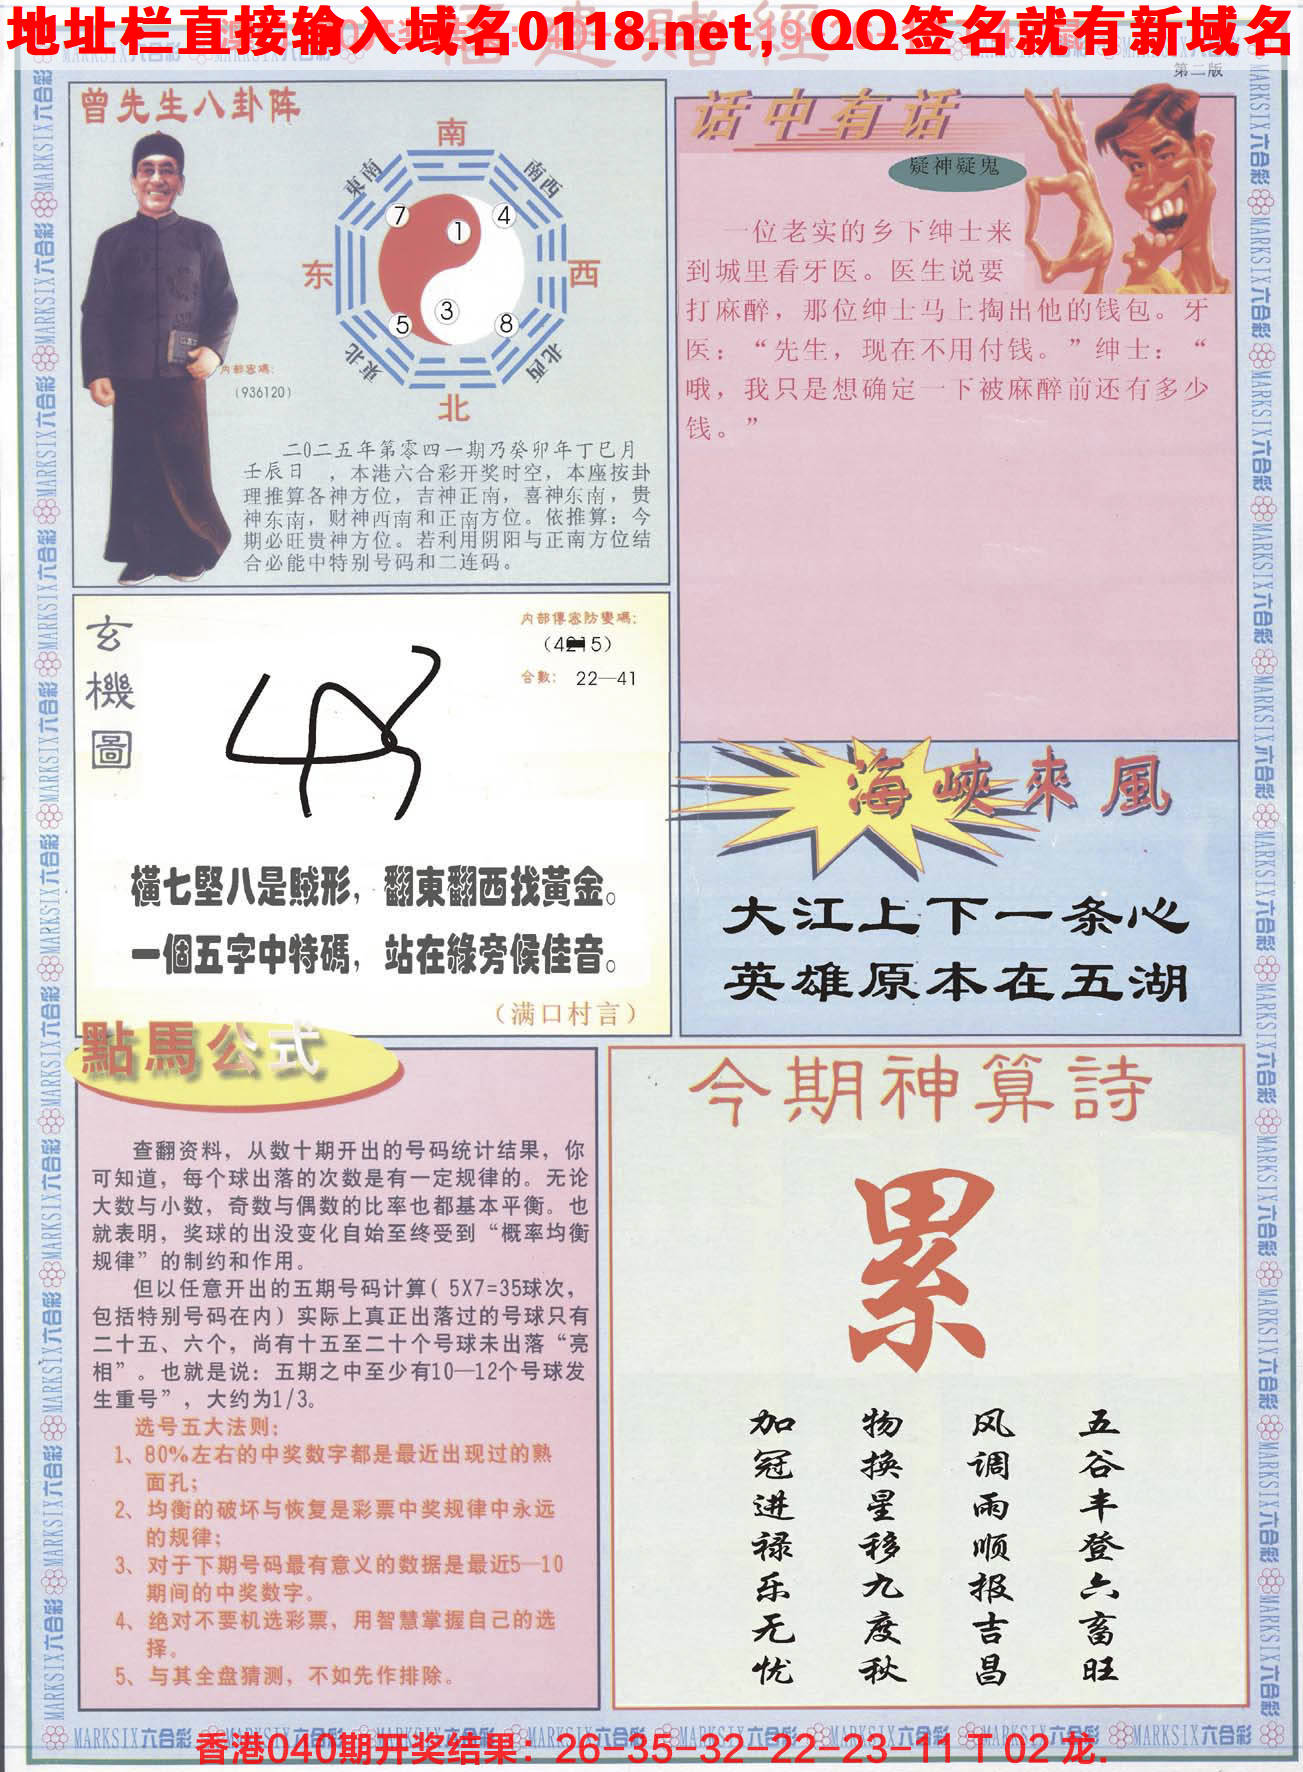 地址栏直接输入域名0118.net，QQ签名就有新域名
第二版
曾先生八卦阵
南
東南
南西
7
4
1
东
西
3
5
8
東北
北西
北
内部密碼：
（936120）
二0二五年第零四一期乃癸卯年丁巳月
壬辰日　，本港六合彩开奖时空，本座按卦
理推算各神方位，吉神正南，喜神东南，贵
神东南，财神西南和正南方位。依推算：今
期必旺贵神方位。若利用阴阳与正南方位结
合必能中特别号码和二连码。
话中有话
疑神疑鬼
一位老实的乡下绅士来
到城里看牙医。医生说要
打麻醉，那位绅士马上掏出他的钱包。牙
医：“先生，现在不用付钱。”绅士：“
哦，我只是想确定一下被麻醉前还有多少
钱。”
玄機圖
内部傳密防變碼：
合數：22—41
橫七堅八是賊形，翻東翻西找黃金。
一個五字中特碼，站在綠旁候佳音。
（满口村言）
海峽來風
大江上下一条心
英雄原本在五湖
點馬公式
查翻资料，从数十期开出的号码统计结果，你
可知道，每个球出落的次数是有一定规律的。无论
大数与小数，奇数与偶数的比率也都基本平衡。也
就表明，奖球的出没变化自始至终受到“概率均衡
规律”的制约和作用。
但以任意开出的五期号码计算（5X7=35球次，
包括特别号码在内）实际上真正出落过的号球只有
二十五、六个，尚有十五至二十个号球未出落“亮
相”。也就是说：五期之中至少有10—12个号球发
生重号”，大约为1/3。
选号五大法则：
1、80%左右的中奖数字都是最近出现过的熟
面孔；
2、均衡的破坏与恢复是彩票中奖规律中永远
的规律；
3、对于下期号码最有意义的数据是最近5—10
期间的中奖数字。
4、绝对不要机选彩票，用智慧掌握自己的选
择。
5、与其全盘猜测，不如先作排除。
今期神算詩
累
五谷丰登六畜旺
风调雨顺报吉昌
物换星移九度秋
加冠进禄乐无忧
MARKSIX六合彩
香港040期开奖结果：26-35-32-22-23-11 T 02 龙.